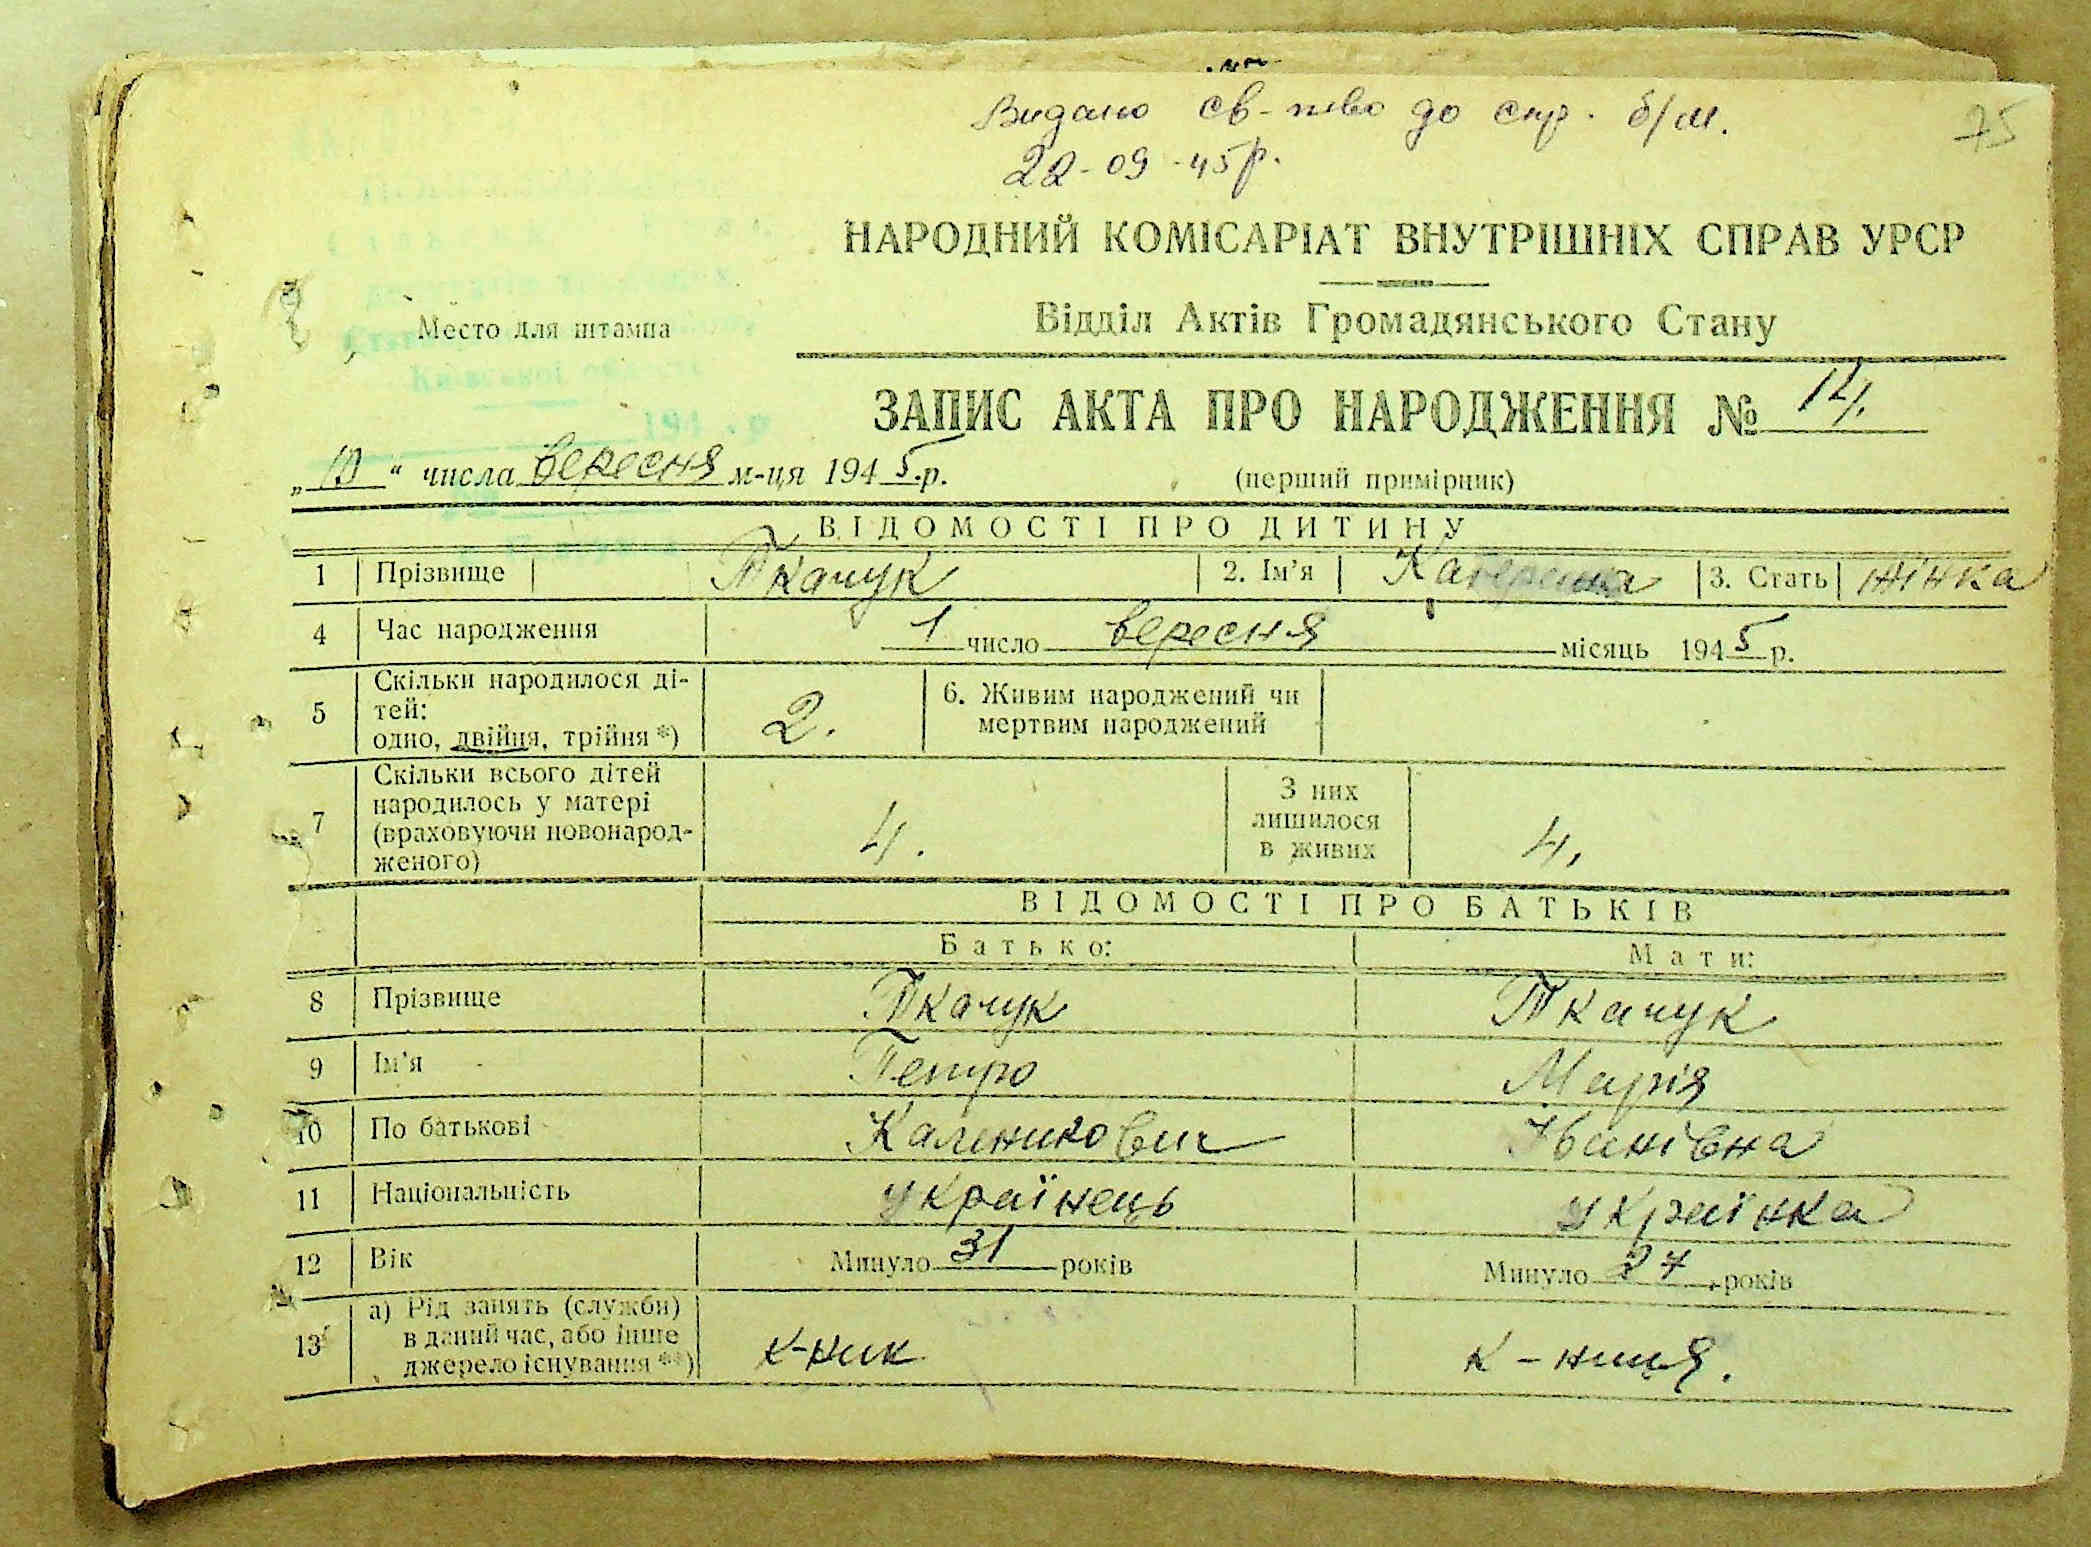 Видано св-тво до спр. б/м.
75
22-09-45р.
НАРОДНИЙ КОМІСАРІАТ ВНУТРІШНІХ СПРАВ УРСР
Відділ Актів Громадянського Стану
Место для штампа
Київської області
194 р
ЗАПИС АКТА ПРО НАРОДЖЕННЯ № 14.
„10“ числа вересня м-ця 1945.р.
(перший примірник)
ВІДОМОСТІ ПРО ДИТИНУ
1 Прізвище Ткачук 2. Ім’я Катерина 3. Стать жінка
4 Час народження 1 число вересня місяць 1945 р.
5 Скільки народилося ді-
тей:
одно, двійня, трійня *) 2.
6. Живим народжений чи
мертвим народжений
7 Скільки всього дітей
народилось у матері
(враховуючи новонарод-
женого) 4.
З них
лишилося
в живих 4.
ВІДОМОСТІ ПРО БАТЬКІВ
Батько: Мати:
8 Прізвище Ткачук Ткачук
9 Ім’я Петро Марія
10 По батькові Каленикович Іванівна
11 Національність українець українка
12 Вік Минуло 31 років Минуло 27 років
13 а) Рід занять (служби)
в даний час, або інше
джерело існування **) к-ник к-ниця.